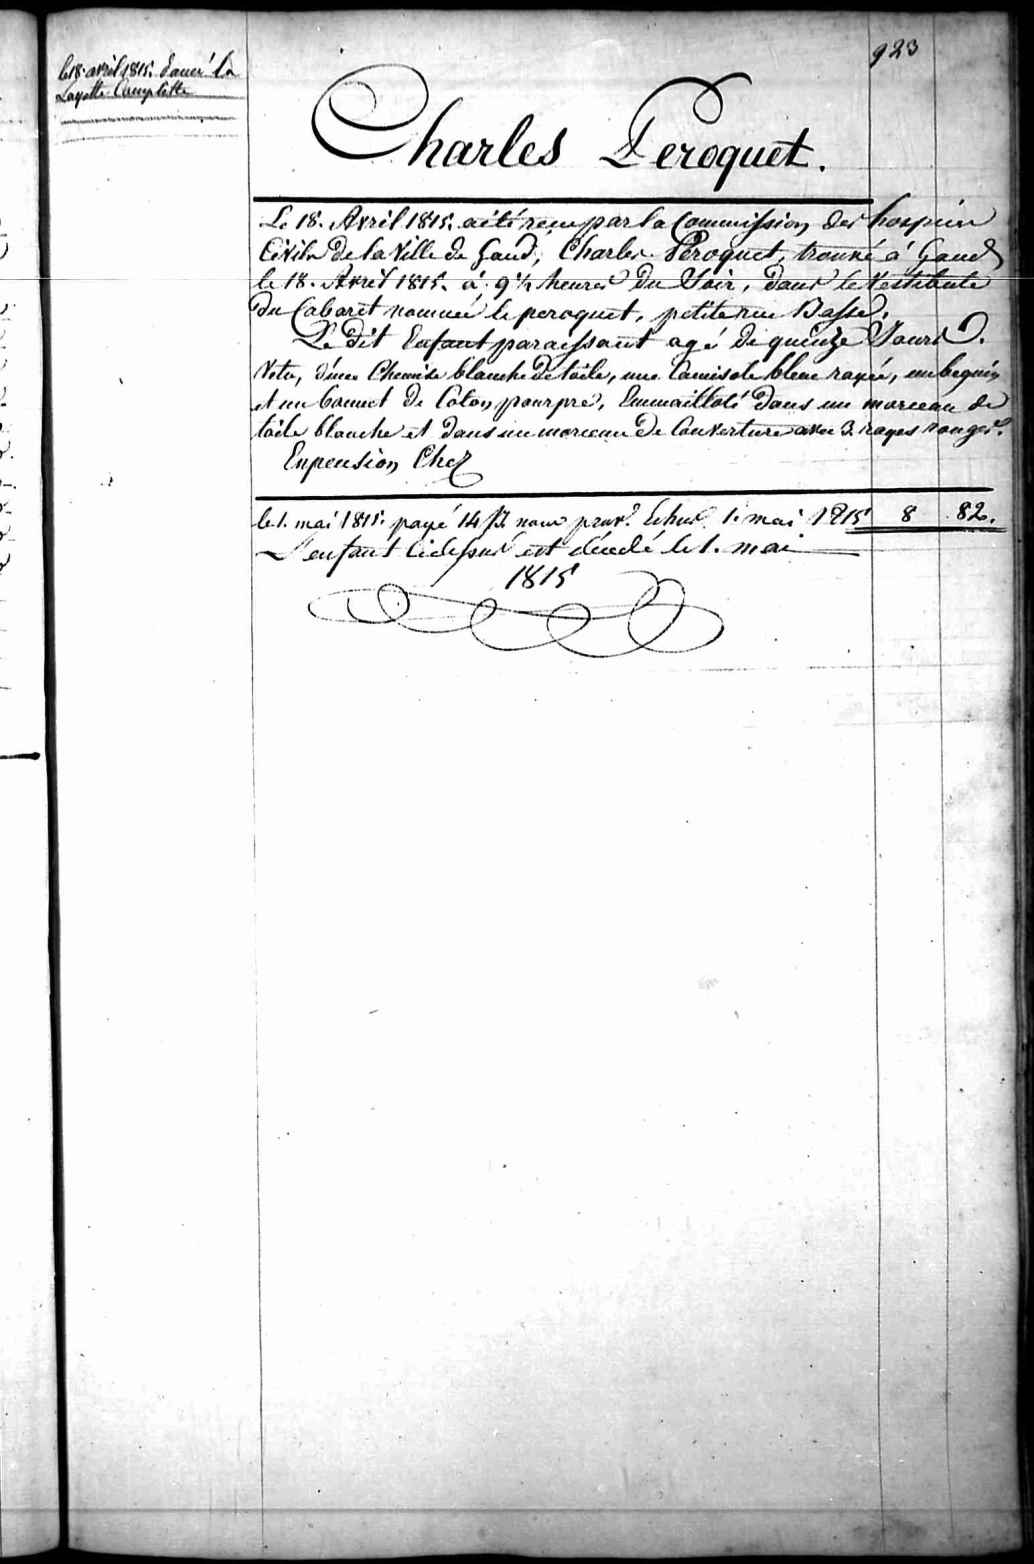 923
le 18. avril 1815. donné la
Layette Complette
Charles Peroquet.
Le 18. Avril 1815. a été reçu par la Commission des hospices
Civils de la Ville de Gand, Charles Peroquet, trouvé à Gand
le 18. Avril 1815. à 9 1/2 heures du Soir, dans le Vestibule
du Cabaret nommé le peroquet, petite rue Basse.
Le dit Enfant paraissant agé de quinze Jours.
Vetu, d'une Chemise blanche de toile, une Camisole bleue rayée, un beguin
et un bonnet de Coton pourpre, Emmailloté dans un morceau de
toile blanche et dans un morceau de Couverture avec 3 rayes rouges.
En pension Chez
le 1. mai 1815. payé 14 J. nour prov.e Echus 1. mai 1815 8 82.
L'enfant Cidessus est décédé le 1. mai
1815